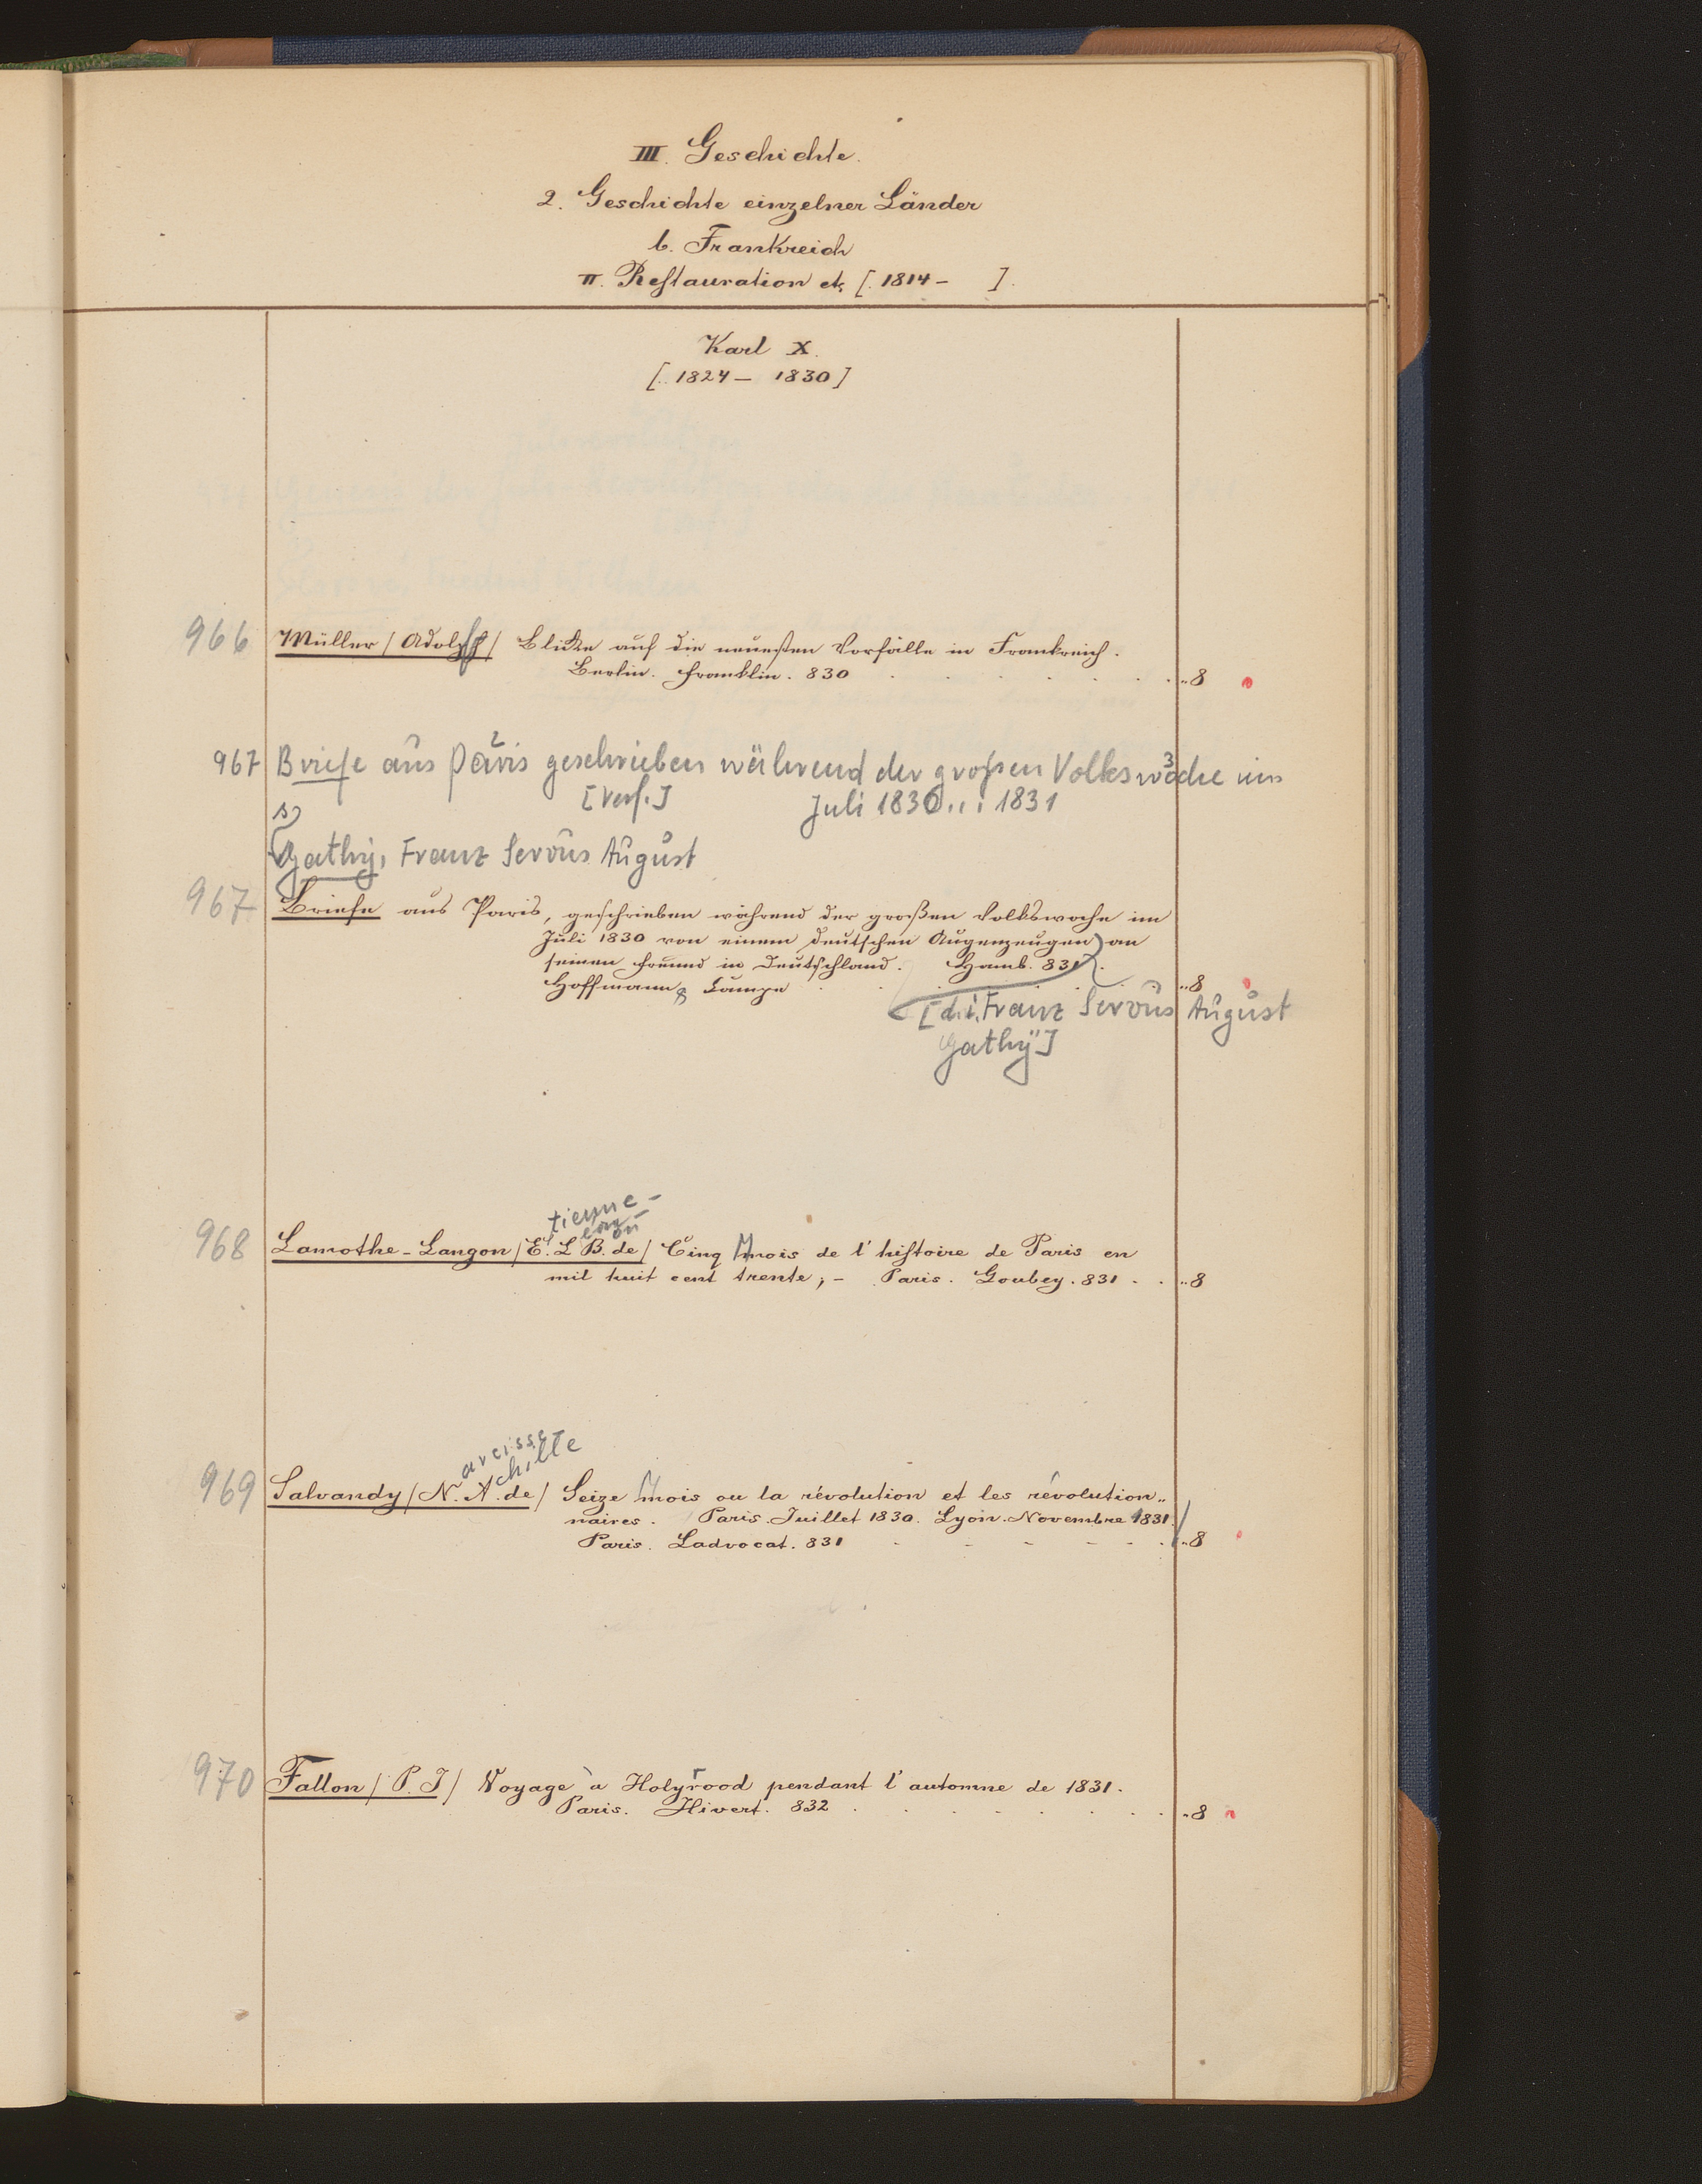 III. Geschichte.
2. Geschichte einzelner Länder
b. Frankreich
π. Restauration etc [. 1814 - ].
Karl X.
[. 1824 - 1830]
966 Müller / Adolph / Blicke auf die neuesten Vorfälle in Frankreich.
Berlin. Franklin. 830 . . . . . . . . "8
967 Briefe aus Paris geschrieben während der großen Volkswoche im
[Verf.] Juli 1830 ... 1831
Gathy, Franz Servus August
967 Briefe aus Paris, geschrieben während der großen Volkswoche im
Juli 1830 von einem deutschen Augenzeugen an
seinen Freund in Deutschland. Hamb. 831.
Hoffmann & Campe . . . . . . "8
[d.i. Franz Servus August
Gathy]
tienne-
eon-
968 Lamothe-Langon / E. L B. de / Cinq Mois de l'histoire de Paris en
mil huit cent trente; - Paris. Goubey. 831 . . "8
arcisse-
chille
969 Salvandy / N. A. de / Seize Mois ou la révolution et les révolution"
naires. Paris. Juillet 1830. Lyon. Novembre 1831.
Paris. Ladvocat. 831 - - - - - . "8
970 Fallon / P. J / Voyage à Holyrood pendant l'automne de 1831.
Paris. Hivert. 832 . . . . . . . . "8